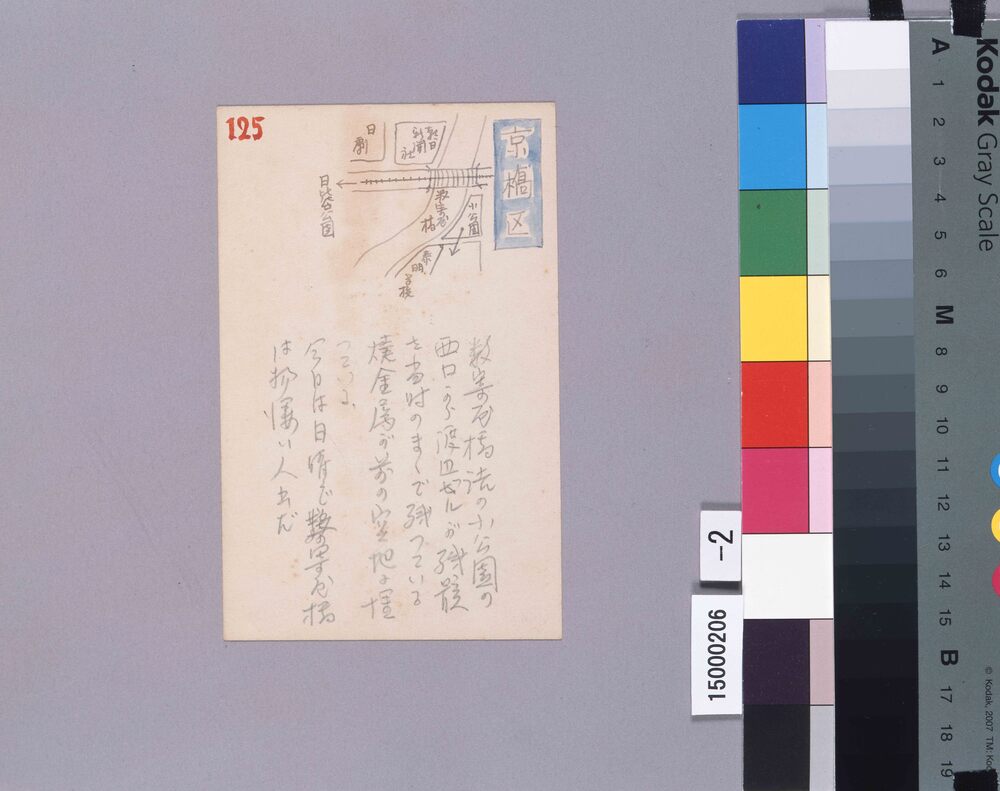 125
京橋区
日劇
朝日新聞社
日比谷公園
数寄屋橋
小公園
泰明学校
数寄屋橋詰の小公園の
西口から渡辺ビルが残骸
を当時のまゝで残っている
焼金属が前の空地に
っている
今日は日晴で数寄屋橋
は物凄い人出だ
15000206
-2
Kodak Gray Scale
A 1 2 3 4 5 6 M 8 9 10 11 12 13 14 15 B 17 18 19
© Kodak, 2007 TM: